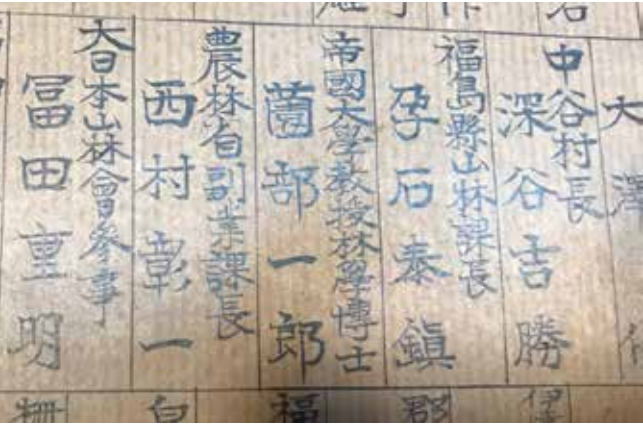 中谷村長
深谷吉勝
福島縣山林課長
孕石泰鎮
帝國大學教授林學博士
薗部一郎
農林省副業課長
西村彰一
大日本山林會參事
冨田重明